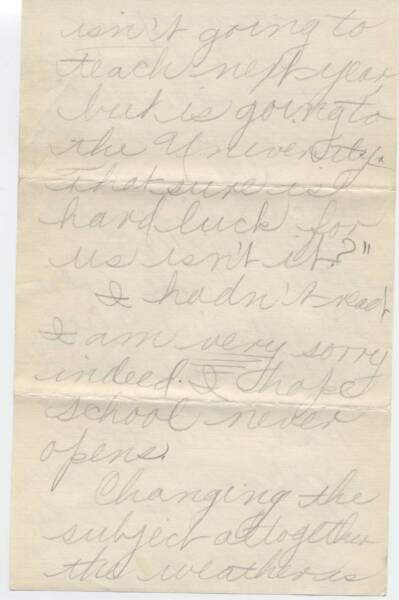 isn't going to
teach next year
but is going to
the University.
That sure is
hard luck for
us isn't it?"
I hadn't read
I am very sorry
indeed. I hope
school never
opens.
Changing the
subject altogether
the weather is